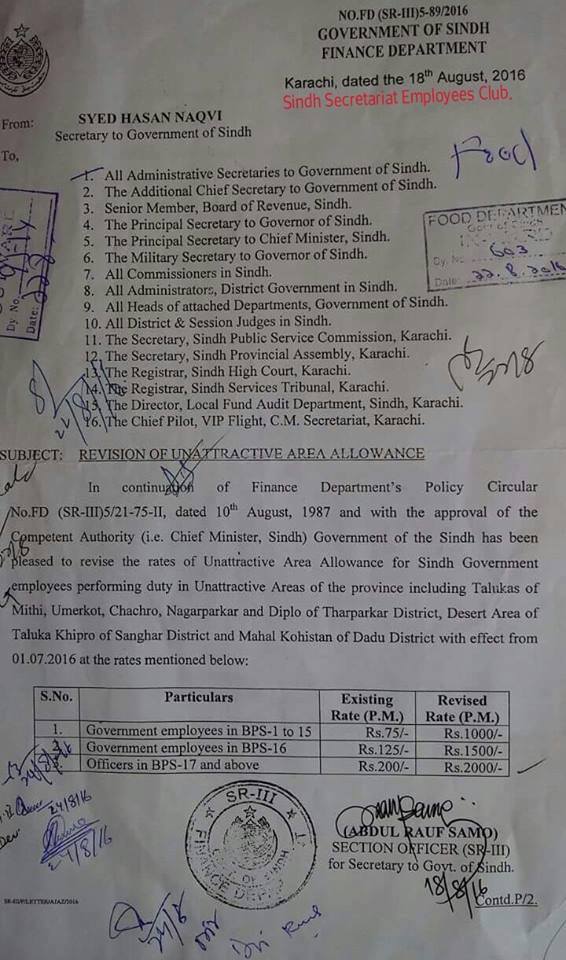 NO.FD (SR-III)5-89/2016
GOVERNMENT OF SINDH
FINANCE DEPARTMENT
Karachi, dated the 18th August, 2016
Sindh Secretariat Employees Club.
From:
SYED HASAN NAQVI
Secretary to Government of Sindh
To,
Food
1. All Administrative Secretaries to Government of Sindh.
2. The Additional Chief Secretary to Government of Sindh.
3. Senior Member, Board of Revenue, Sindh.
4. The Principal Secretary to Governor of Sindh.
5. The Principal Secretary to Chief Minister, Sindh.
6. The Military Secretary to Governor of Sindh.
7. All Commissioners in Sindh.
8. All Administrators, District Government in Sindh.
9. All Heads of attached Departments, Government of Sindh.
10. All District & Session Judges in Sindh.
11. The Secretary, Sindh Public Service Commission, Karachi.
12. The Secretary, Sindh Provincial Assembly, Karachi.
13. The Registrar, Sindh High Court, Karachi.
14. The Registrar, Sindh Services Tribunal, Karachi.
15. The Director, Local Fund Audit Department, Sindh, Karachi.
16. The Chief Pilot, VIP Flight, C.M. Secretariat, Karachi.
FOOD DEPARTMEN
Dy. No. 603
Date: 22.8.2016
Dy No.
Date:
SUBJECT: REVISION OF UNATTRACTIVE AREA ALLOWANCE
In continuation of Finance Department's Policy Circular
No.FD (SR-III)5/21-75-II, dated 10th August, 1987 and with the approval of the
Competent Authority (i.e. Chief Minister, Sindh) Government of the Sindh has been
pleased to revise the rates of Unattractive Area Allowance for Sindh Government
employees performing duty in Unattractive Areas of the province including Talukas of
Mithi, Umerkot, Chachro, Nagarparkar and Diplo of Tharparkar District, Desert Area of
Taluka Khipro of Sanghar District and Mahal Kohistan of Dadu District with effect from
01.07.2016 at the rates mentioned below:
S.No. Particulars Existing Rate (P.M.) Revised Rate (P.M.)
1. Government employees in BPS-1 to 15 Rs.75/- Rs.1000/-
2. Government employees in BPS-16 Rs.125/- Rs.1500/-
Officers in BPS-17 and above Rs.200/- Rs.2000/-
24/8/16
24/8/16
SR-III
FINANCE DEPTT.
GOVT. OF SINDH
(ABDUL RAUF SAMO)
SECTION OFFICER (SR-III)
for Secretary to Govt. of Sindh.
18/8/16
Contd.P/2.
24/8